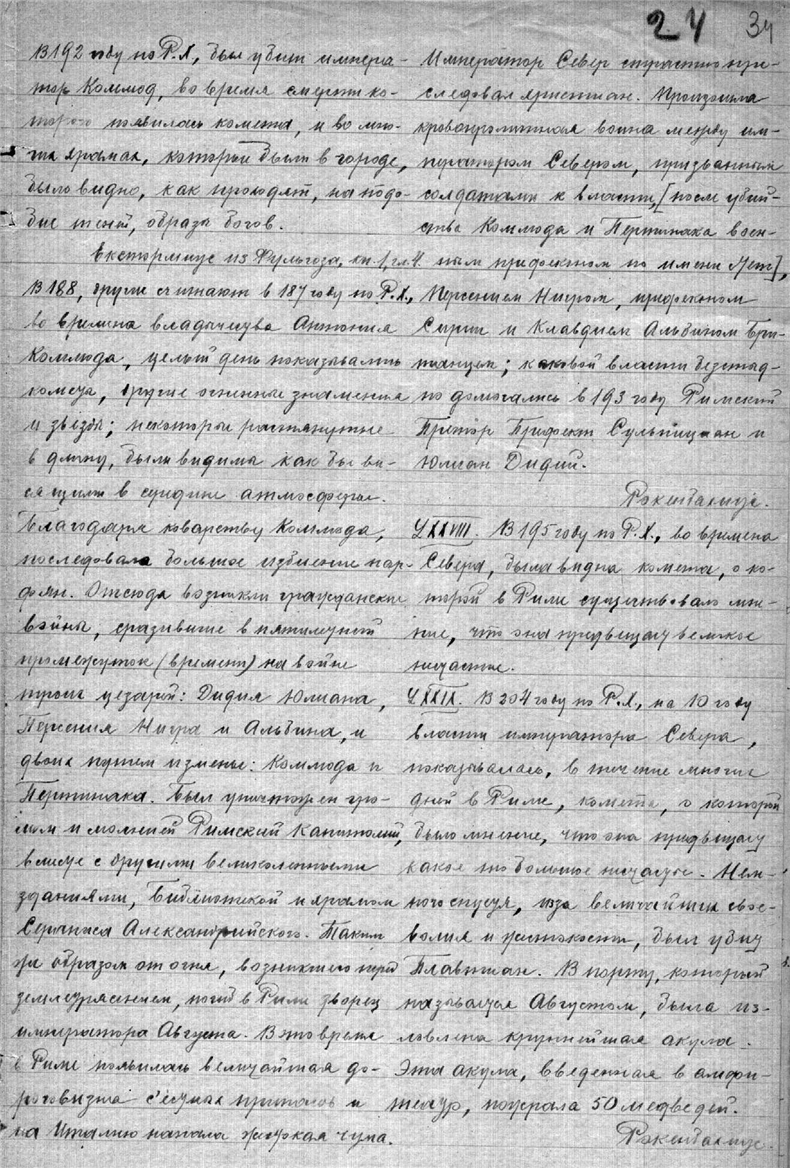 24 34
В 192 году по Р.Х., был убит импера-
тор Коммод, во время смерти ко-
торого появилась комета, и во мно-
гих храмах, которые были в городе,
было видно, как проходят, на подо-
бие теней, образа богов.
из Фульгоза, кн. 1, гл. 4.
В 188, другие считают в 187 году по Р.Х.,
во времена владычества Антония
Коммода, целый день показывались
комета, другие огненные знамения
и звезды; некоторые растянутые
в длину, были видима как бы ви-
сящими в средине атмосферы.
Благодаря коварству Коммода,
последовала большое избиение пар-
фян. Отсюда возникли гражданские
войны, сразившие в пятилетний
промежуток (времени) на войне
троих цезарей: Дидия Юлиана,
Песцения Нигра и Альбина, и
двоих путем измены: Коммода и
Пертинака. Был уничтожен гро-
мом и молнией Римский Капитолий,
вместе с другими великолепными
зданиями, библиотекой и храмом
Сераписа Александрийского. Таким
же образом от огня, возникшего перед
землетрясением, погиб в Риме дворец
императора Августа. В это время
в Риме появилась величайшая до-
роговизна съестных припасов и
на Италию напала жестокая чума.
Император Север страстно пре-
следовал христиан. Произошла
кровопролитная война между им-
ператором Севером, призванным
солдатами к власти [после убий-
ства Коммода и Пертинака воен-
ным префектом по имени Лет],
Песцением Нигром, префектом
Сирии и Клавдием Альбином Бри-
танцем; каковой власти безстыд-
но домогались в 193 году Римский
Претор Префект Сульпициан и
Юлиан Дидий.
Рокенбахиус.
LXXVIII. В 195 году по Р.Х., во времена
Севера, была видна комета, о ко-
торой в Риме существовало мне-
ние, что она предвещает великое
несчастье.
LXXIX. В 204 году по Р.Х., на 10 году
власти императора Севера,
показывалась, в течение многих
дней в Риме, комета, о которой
было мнение, что она предвещает
какое то большое несчастье. Нем-
ного спустя, из за величайших свое-
волия и жестокости, был убит
Плавтиан. В порту, который
называется Августом, была из-
ловлена крупнейшая акула.
Эта акула, введенная в амфи-
театр, пожрала 50 медведей.
Рокенбахиус.